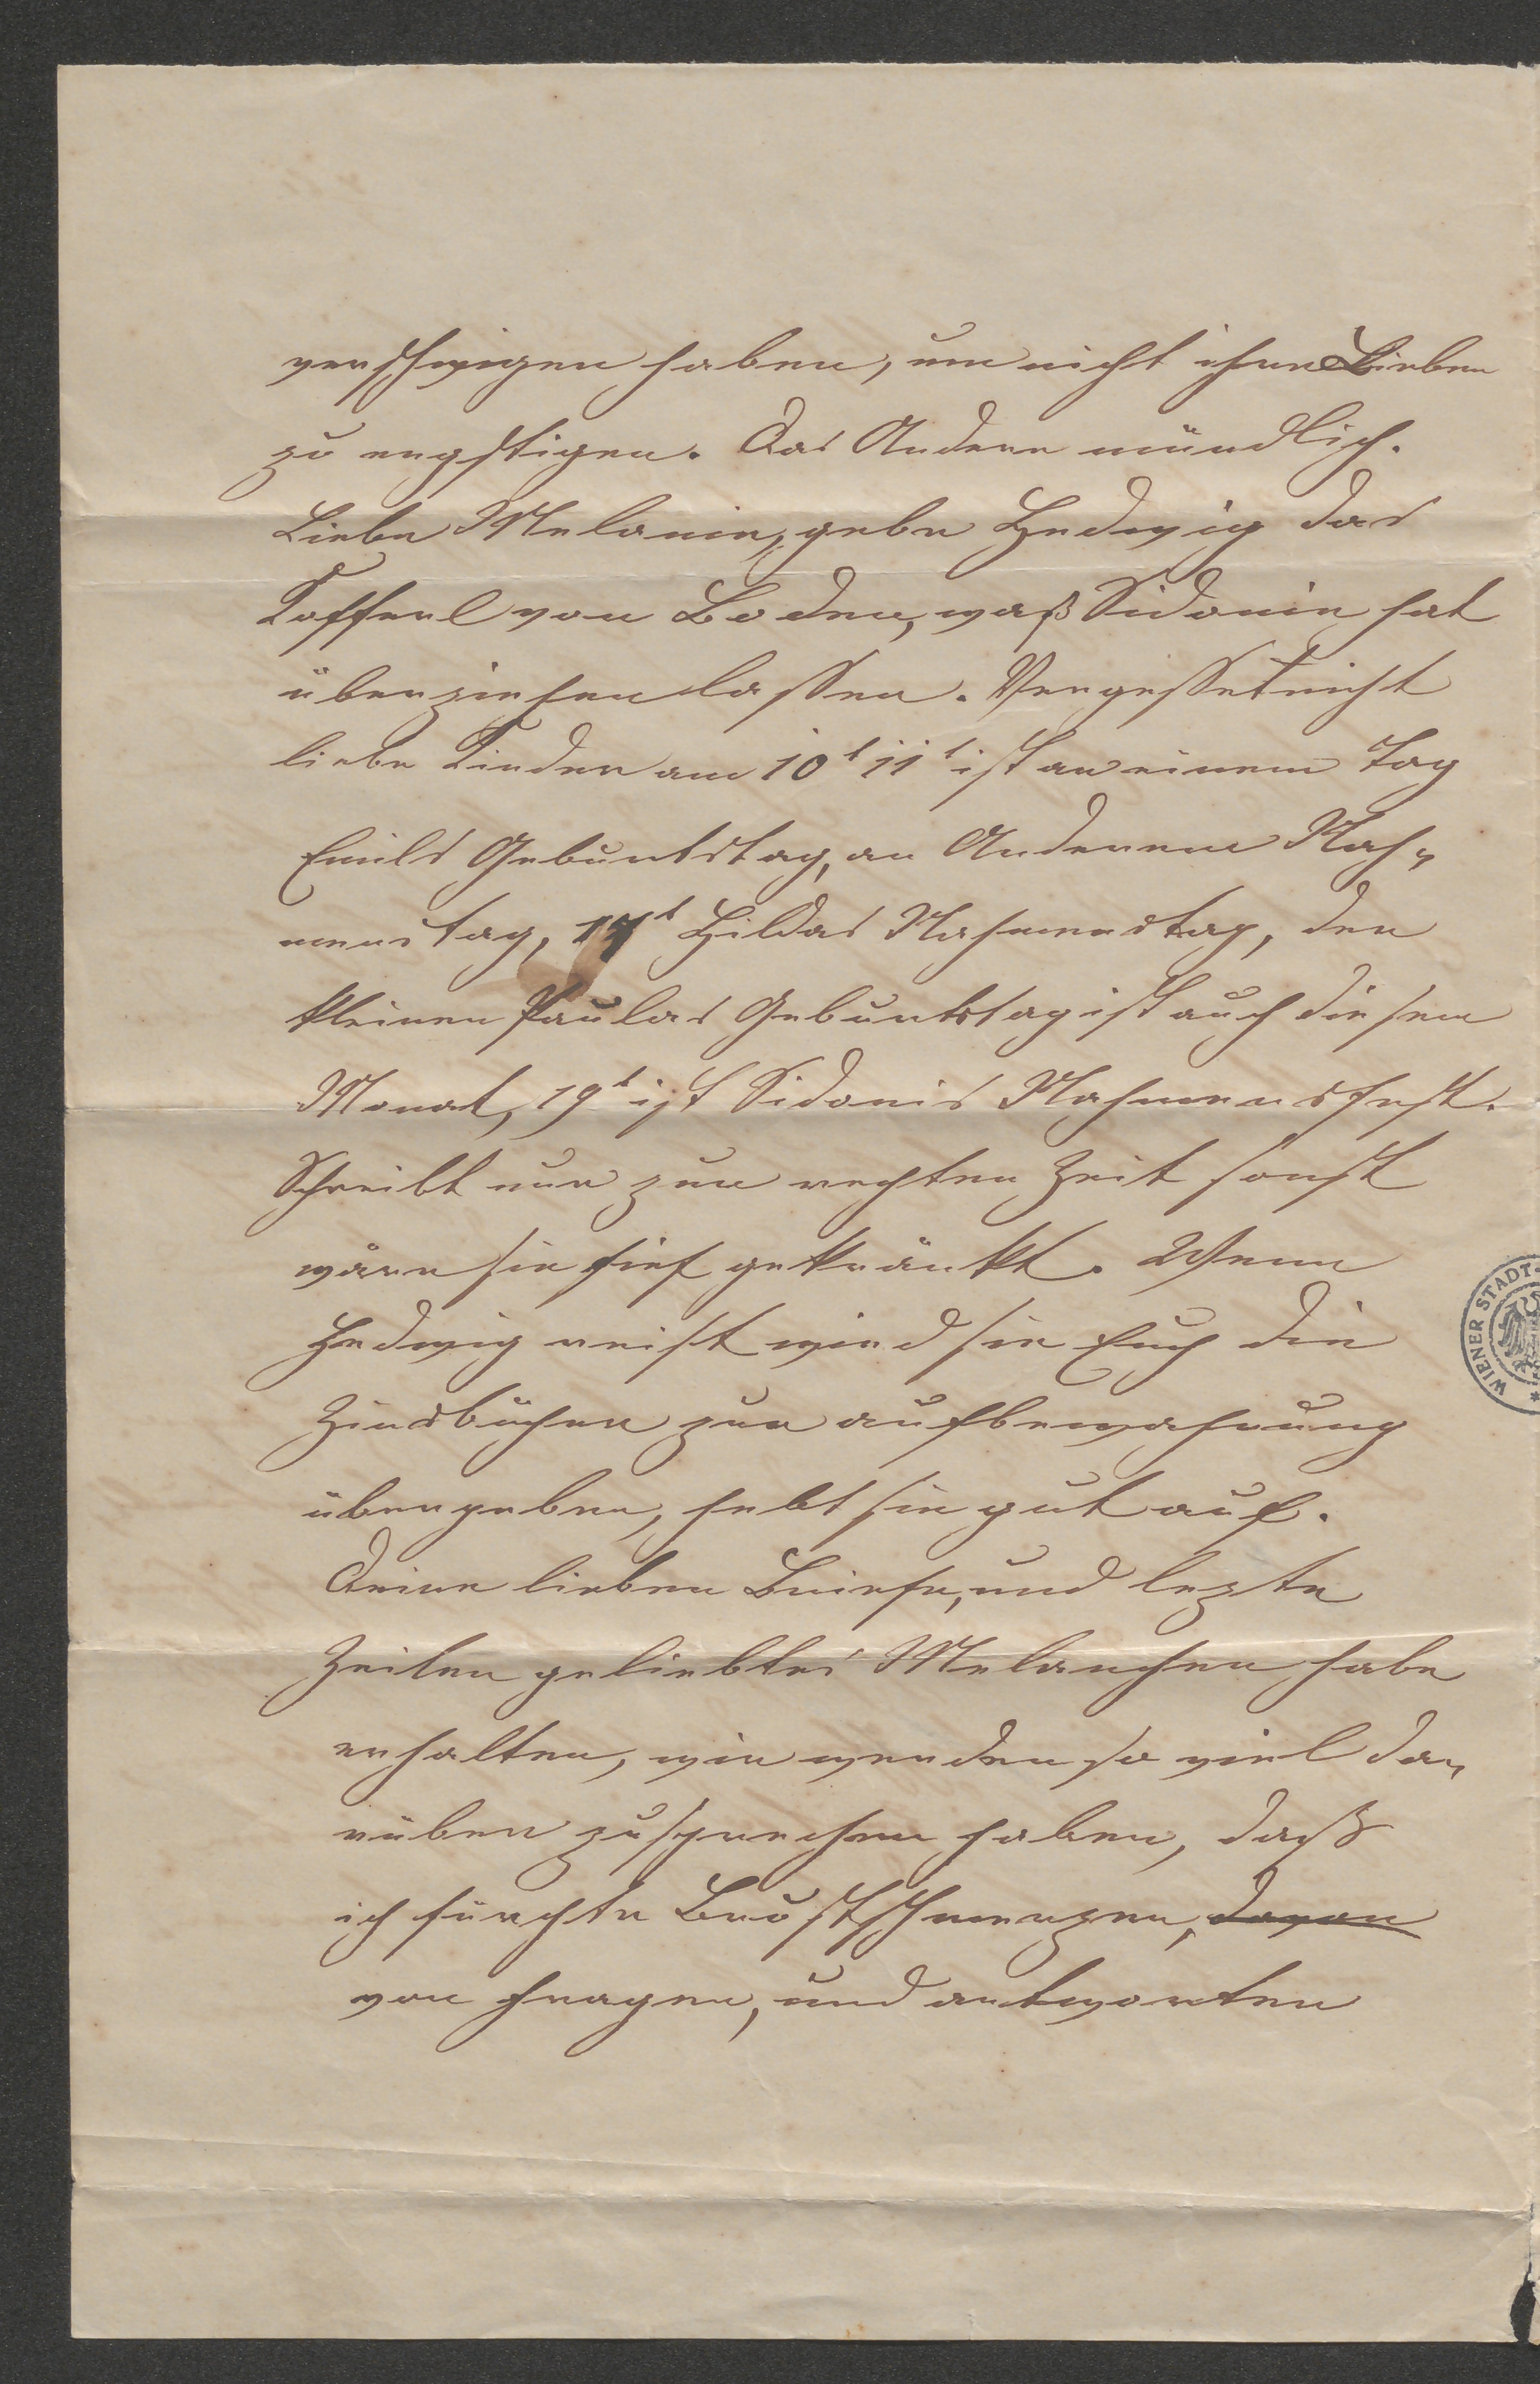 verschwigen haben, um nicht ihre Lieben
zu engstigen. Das Andere mündlich.
Liebe Melanie, gebe Hedwig das
Kofferl von Boden, waß Sidonie hat
überziehen lassen. Vergesset nicht
liebe Kinder am 10t 11t ist an einem Tag
Emils Geburtstag, an Anderem Nah-
menstag, 17t Hildas Nahmenstag, der
kleinen Paulas Geburtstag ist auch diesem
Monat, 19t ist Sidonis Nahmensfest.
Schreibt nur zur rechten Zeit sonst
wäre sie tief gekränkt. Wenn
Hedwig reist wird sie Euch die
Zinsbücher zur aufbewahrung
übergeben, hebt sie gut auf.
Deine lieben Briefe, und lezte
Zeilen geliebtes Melanchen habe
erhalten, wir werden so viel da-
rüber zu sprechen haben, daß
ich fürchte Brustschmerzen, davon
von fragen, und antworten
WIENER STADT-